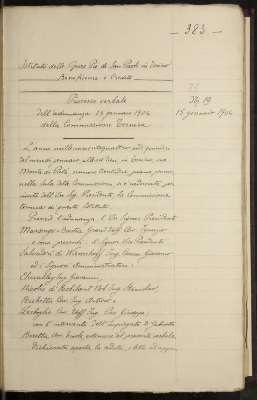 - 383 -
Istituto delle Opere Pie di San Paolo in Torino
Beneficenza e Credito
Processo verbale
dell'adunanza 15 gennaio 1904
della Commissione Tecnica
N. 19
15 gennaio 1904
L'anno millenovecentoquattro addì quindici
del mese di gennaio, alle ore dieci in Torino, via
Monte di Pietà, numero trentadue, piano primo,
nella Sala delle Commissioni, si è radunata, per
invito dell'Ill. Sig. Presidente, la Commissione
tecnica di questo Istituto.
Presiede l'adunanza il Vice Signor Presidente
Marsengo Bastia Grand'Uff. Avv. Ignazio
e sono presenti: il Signor Vice Presidente
Salvadori di Wiesenhoff Ing. Comm. Giacomo
ed i Signori Amministratori:
Chevalley Ing. Giovanni,
Nicolis di Robilant Nob. Ing. Stanislao,
Bichetta Cav. Ing.
Cav. Uff. Ing. Pier Giuseppe,
con l'intervento dell'Impiegato di Gabinetto
Cav. Ercole estensore del presente verbale.
Dichiarata aperta la seduta, e letto ed appro